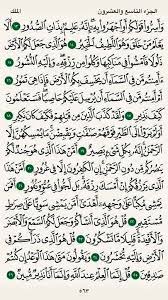 الجزء التاسع والعشرون الملك
وَأَسِرُّوا۟ قَوْلَكُمْ أَوِ ٱجْهَرُوا۟ بِهِۦٓ إِنَّهُۥ عَلِيمٌۢ بِذَاتِ ٱلصُّدُورِ ١٣
أَلَا يَعْلَمُ مَنْ خَلَقَ وَهُوَ ٱللَّطِيفُ ٱلْخَبِيرُ ١٤ هُوَ ٱلَّذِى جَعَلَ لَكُمُ ٱلْأَرْضَ
ذَلُولًا فَٱمْشُوا۟ فِى مَنَاكِبِهَا وَكُلُوا۟ مِن رِّزْقِهِۦ وَإِلَيْهِ ٱلنُّشُورُ ١٥
ءَأَمِنتُم مَّن فِى ٱلسَّمَآءِ أَن يَخْسِفَ بِكُمُ ٱلْأَرْضَ فَإِذَا هِىَ تَمُورُ ١٦
أَمْ أَمِنتُم مَّن فِى ٱلسَّمَآءِ أَن يُرْسِلَ عَلَيْكُمْ حَاصِبًا فَسَتَعْلَمُونَ
كَيْفَ نَذِيرِ ١٧ وَلَقَدْ كَذَّبَ ٱلَّذِينَ مِن قَبْلِهِمْ فَكَيْفَ كَانَ نَكِيرِ ١٨
أَوَلَمْ يَرَوْا۟ إِلَى ٱلطَّيْرِ فَوْقَهُمْ صَٰٓفَّٰتٍ وَيَقْبِضْنَ مَا يُمْسِكُهُنَّ إِلَّا
ٱلرَّحْمَٰنُ إِنَّهُۥ بِكُلِّ شَىْءٍۭ بَصِيرٌ ١٩ أَمَّنْ هَٰذَا ٱلَّذِى هُوَ جُندٌ لَّكُمْ
يَنصُرُكُم مِّن دُونِ ٱلرَّحْمَٰنِ إِنِ ٱلْكَٰفِرُونَ إِلَّا فِى غُرُورٍ ٢٠
أَمَّنْ هَٰذَا ٱلَّذِى يَرْزُقُكُمْ إِنْ أَمْسَكَ رِزْقَهُۥ بَل لَّجُّوا۟ فِى عُتُوٍّ
وَنُفُورٍ ٢١ أَفَمَن يَمْشِى مُكِبًّا عَلَىٰ وَجْهِهِۦٓ أَهْدَىٰٓ أَمَّن يَمْشِى سَوِيًّا عَلَىٰ صِرَٰطٍ
مُّسْتَقِيمٍ ٢٢ قُلْ هُوَ ٱلَّذِىٓ أَنشَأَكُمْ وَجَعَلَ لَكُمُ ٱلسَّمْعَ وَٱلْأَبْصَٰرَ
وَٱلْأَفْـِٔدَةَ قَلِيلًا مَّا تَشْكُرُونَ ٢٣ قُلْ هُوَ ٱلَّذِى ذَرَأَكُمْ فِى
ٱلْأَرْضِ وَإِلَيْهِ تُحْشَرُونَ ٢٤ وَيَقُولُونَ مَتَىٰ هَٰذَا ٱلْوَعْدُ إِن كُنتُمْ
صَٰدِقِينَ ٢٥ قُلْ إِنَّمَا ٱلْعِلْمُ عِندَ ٱللَّهِ وَإِنَّمَآ أَنَا۠ نَذِيرٌ مُّبِينٌ ٢٦
٥٦٣